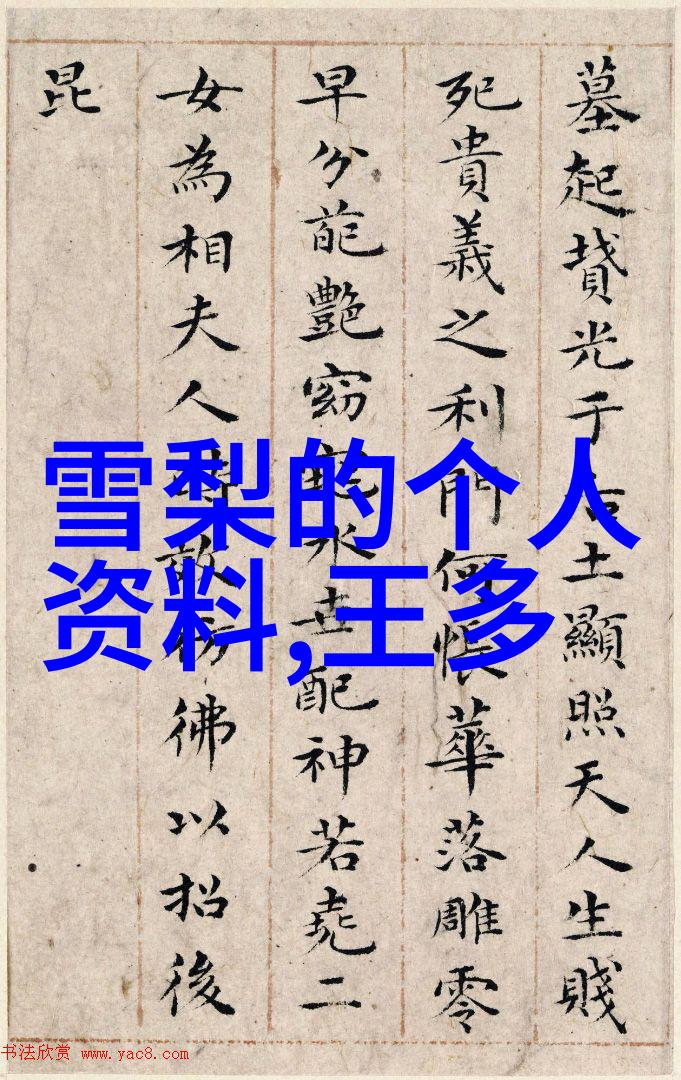 墓起光于土顯照天人生賤
死貴義之利門何悵華落雕零
早分葩艷窈窕世配神若堯二
女為相夫人彷彿以招後
昆
雪梨的个人
资料,王多
书法欣赏 www.yac8.com